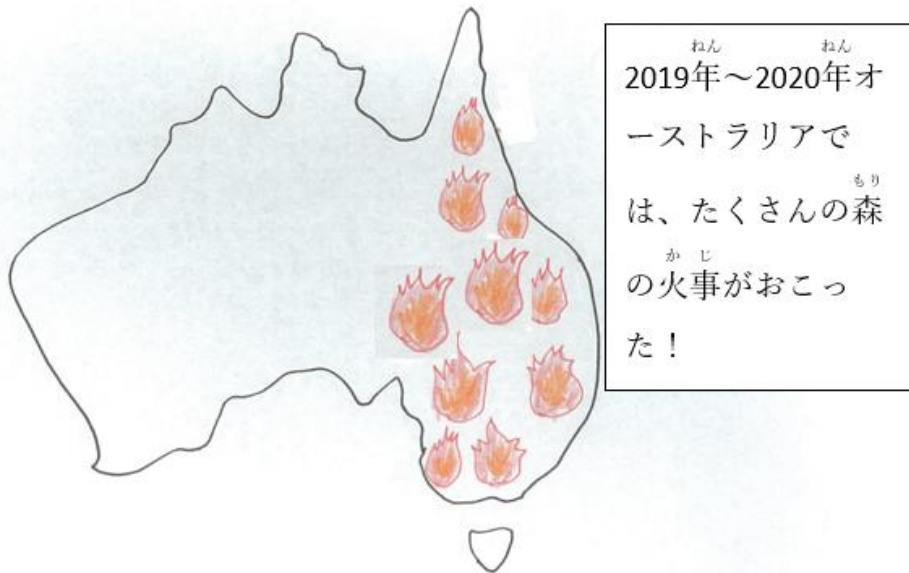 2019年～2020年オ
ーストラリアで
は、たくさんの森
の火事がおこっ
た！